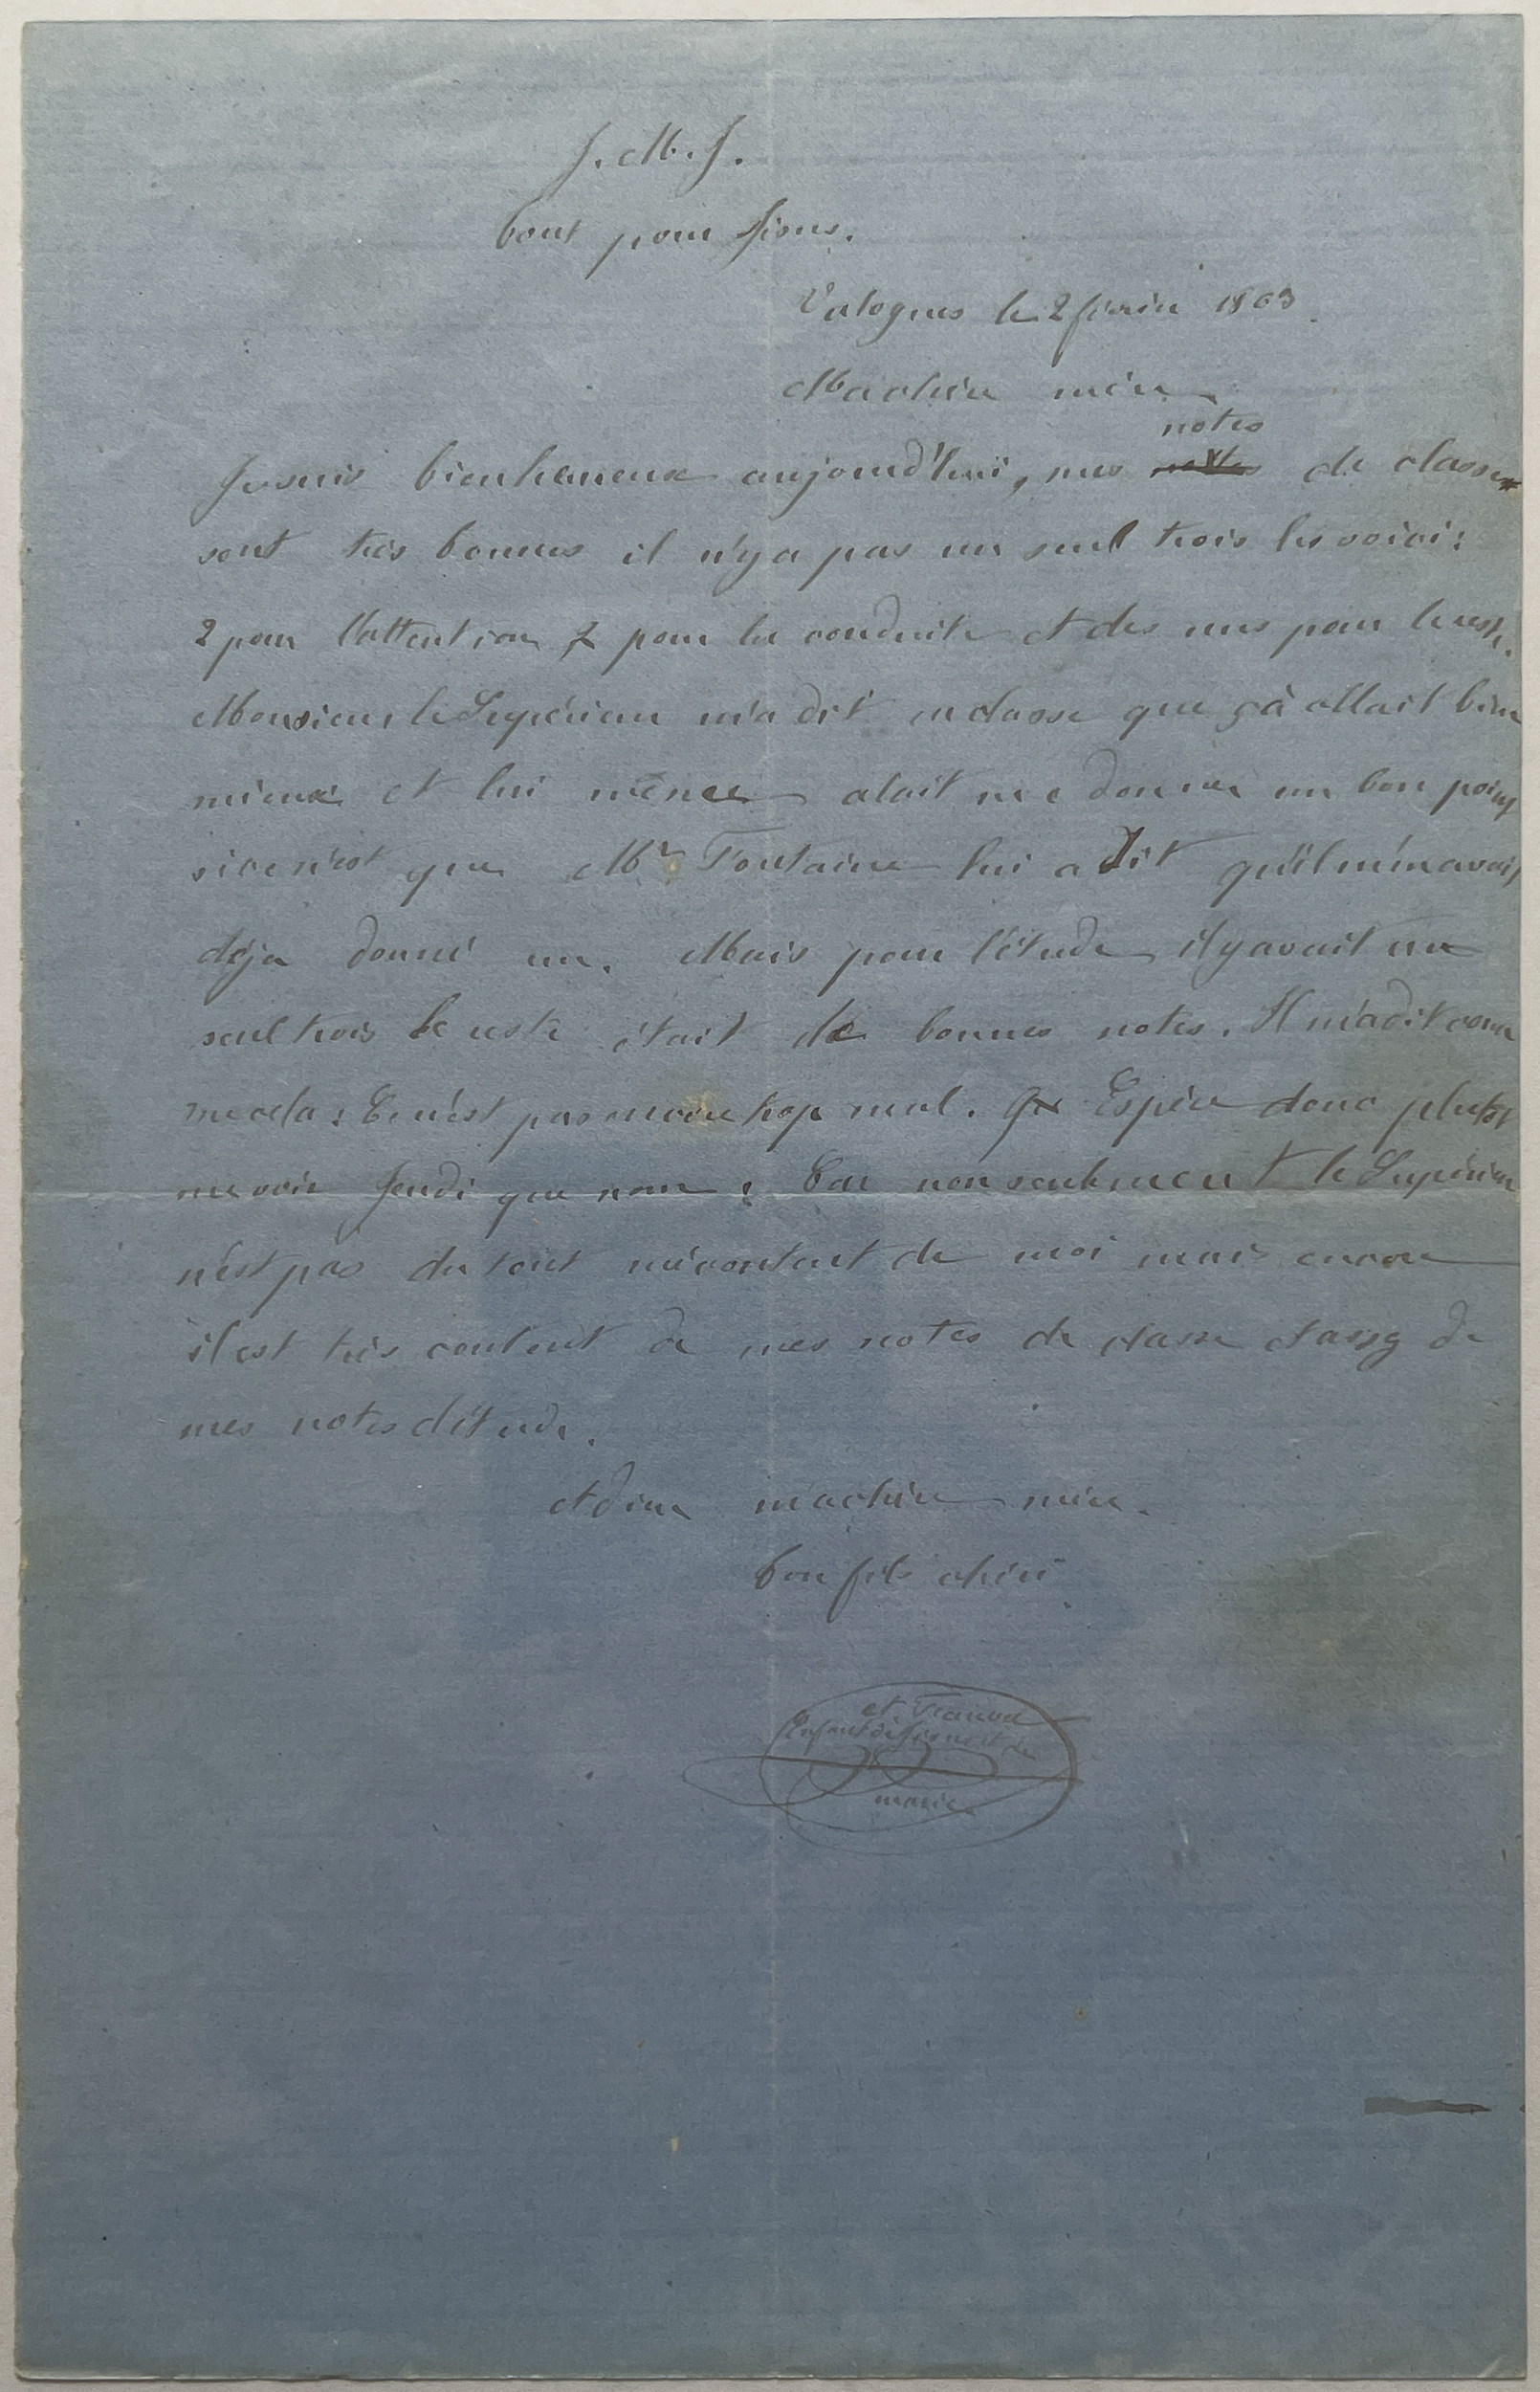 J. M. J.
tout pour Jésus.
Valognes le 2 février 1863.
Ma chère mère
notes
Je suis bien heureux aujourd'hui, mes de classe
sont très bonnes il n'y a pas un seul trois les voici:
2 pour l'attention 2 pour la conduite et des uns pour le reste.
Monsieur le Supérieur m'a dit en classe que çà allait bien
mieux et lui même alait me donner un bon point
si ce n'est que Mr Fontaine lui a dit qu'il m'en avait
déja donné un. Mais pour l'étude il y avait un
seul trois le reste était de bonnes notes. Il m'a dit com
me cela: Ce n'est pas encore trop mal. Espère donc plutot
me voir Jeudi que non: Car non seulement le Supérieur
n'est pas du tout mécontent de moi mais encore
il est très content de mes notes de classe et assez de
mes notes d'étude.
Adieu ma chère mère.
Ton fils chéri
A. François
Enfant de Jésus et de
marie